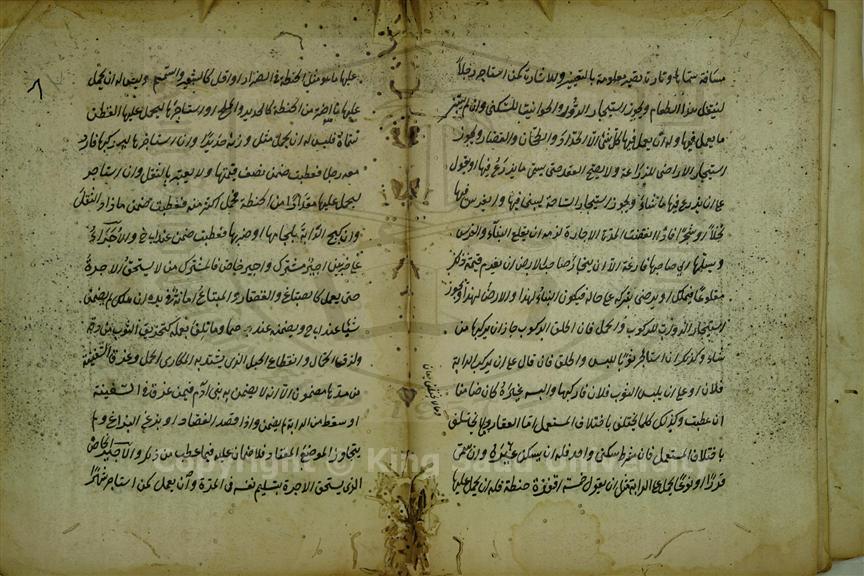 مسافة سماها وتارة تصير معلومة بالتعيين والاشارة كمن استاجر رجلا
لينقل هذا الطعام ويجوز استيجار الدور والحوانيت للسكنى وان لم يبين
ما يعمل فيها وله ان يعمل فيها كل شئ الا الحداد والطحان والقصار ويجوز
استيجار الاراضي للزراعة ولا يصح العقد حتى يسمى ما يزرع فيها او يقول
على ان يزرع فيها ما شاء ويجوز استيجار الساحة ليبني فيها او يغرس فيها
نخلا او شجرا فاذا انقضت المدة الاجارة لزمه ان يقلع البناء والغرس
ويسلمها الى صاحبها فارغة الا ان يختار صاحب الارض ان يغرم قيمة ذلك
مقلوعا فيملكه او يرضى بتركه على حاله فيكون البناء لهذا والارض لهذا ويجوز
استيجار الدواب للركوب والحمل فان اطلق الركوب جاز ان يركبها من
شاء وكذلك ان استاجر ثوبا للبس واطلق فان قال على ان يركب الدابة
فلان او على ان يلبس الثوب فلان فاركبها والبسه غيره كان ضامنا
ان عطبت وكذلك كل ما يختلف باختلاف المستعمل اما العقار وما لا يختلف
باختلاف المستعمل فان شرط سكنى واحد فله ان يسكن غيره وان سمى
قدرا او نوعا يحمله على الدابة مثل ان يقول خمسة اقفزة حنطة فله ان يحمل عليها
عليها ما هو مثل الحنطة في الضرر او اقل كالشعير والسمسم وليس له ان يحمل
عليها ما اضر من الحنطة كالحديد والملح او استاجرها ليحمل عليها القطن
سماه فليس له ان يحمل مثل وزنه حديدا وان استاجرها ليركبها فاردف
معه رجلا فعطبت ضمن نصف قيمتها ولا يعتبر بالثقل وان استاجر
ليحمل عليها مقدارا من الحنطة فحمل اكثر منه فعطبت ضمن ما زاد الثقل
وان كبح الدابة بلجامها او ضربها فعطبت ضمن عند ابي ح والاجراء
على ضربين اجير مشترك واجير خاص فالمشترك من لا يستحق الاجرة
حتى يعمل كالصباغ والقصار والمتاع امانة في يده ان هلك لم يضمن
شيئا عند ابي ح ويضمنه عندهما وما تلف بعمله كتخريق الثوب من دقه
وزلق الحمال وانقطاع الحبل الذي يشد به المكاري الحمل وغرق السفينة
من مدها مضمون الا انه لا يضمن به بني ادم فيمن غرق في السفينة
او سقط من الدابة لم يضمن واذا فصد الفصاد او بزغ البزاغ ولم
يتجاوز الموضع المعتاد فلا ضمان عليه فيما عطب من ذلك والاجير الخاص
الذي يستحق الاجرة بتسليم نفسه في المدة وان لم يعمل كمن استاجر شهرا
Copyright © King Saud University